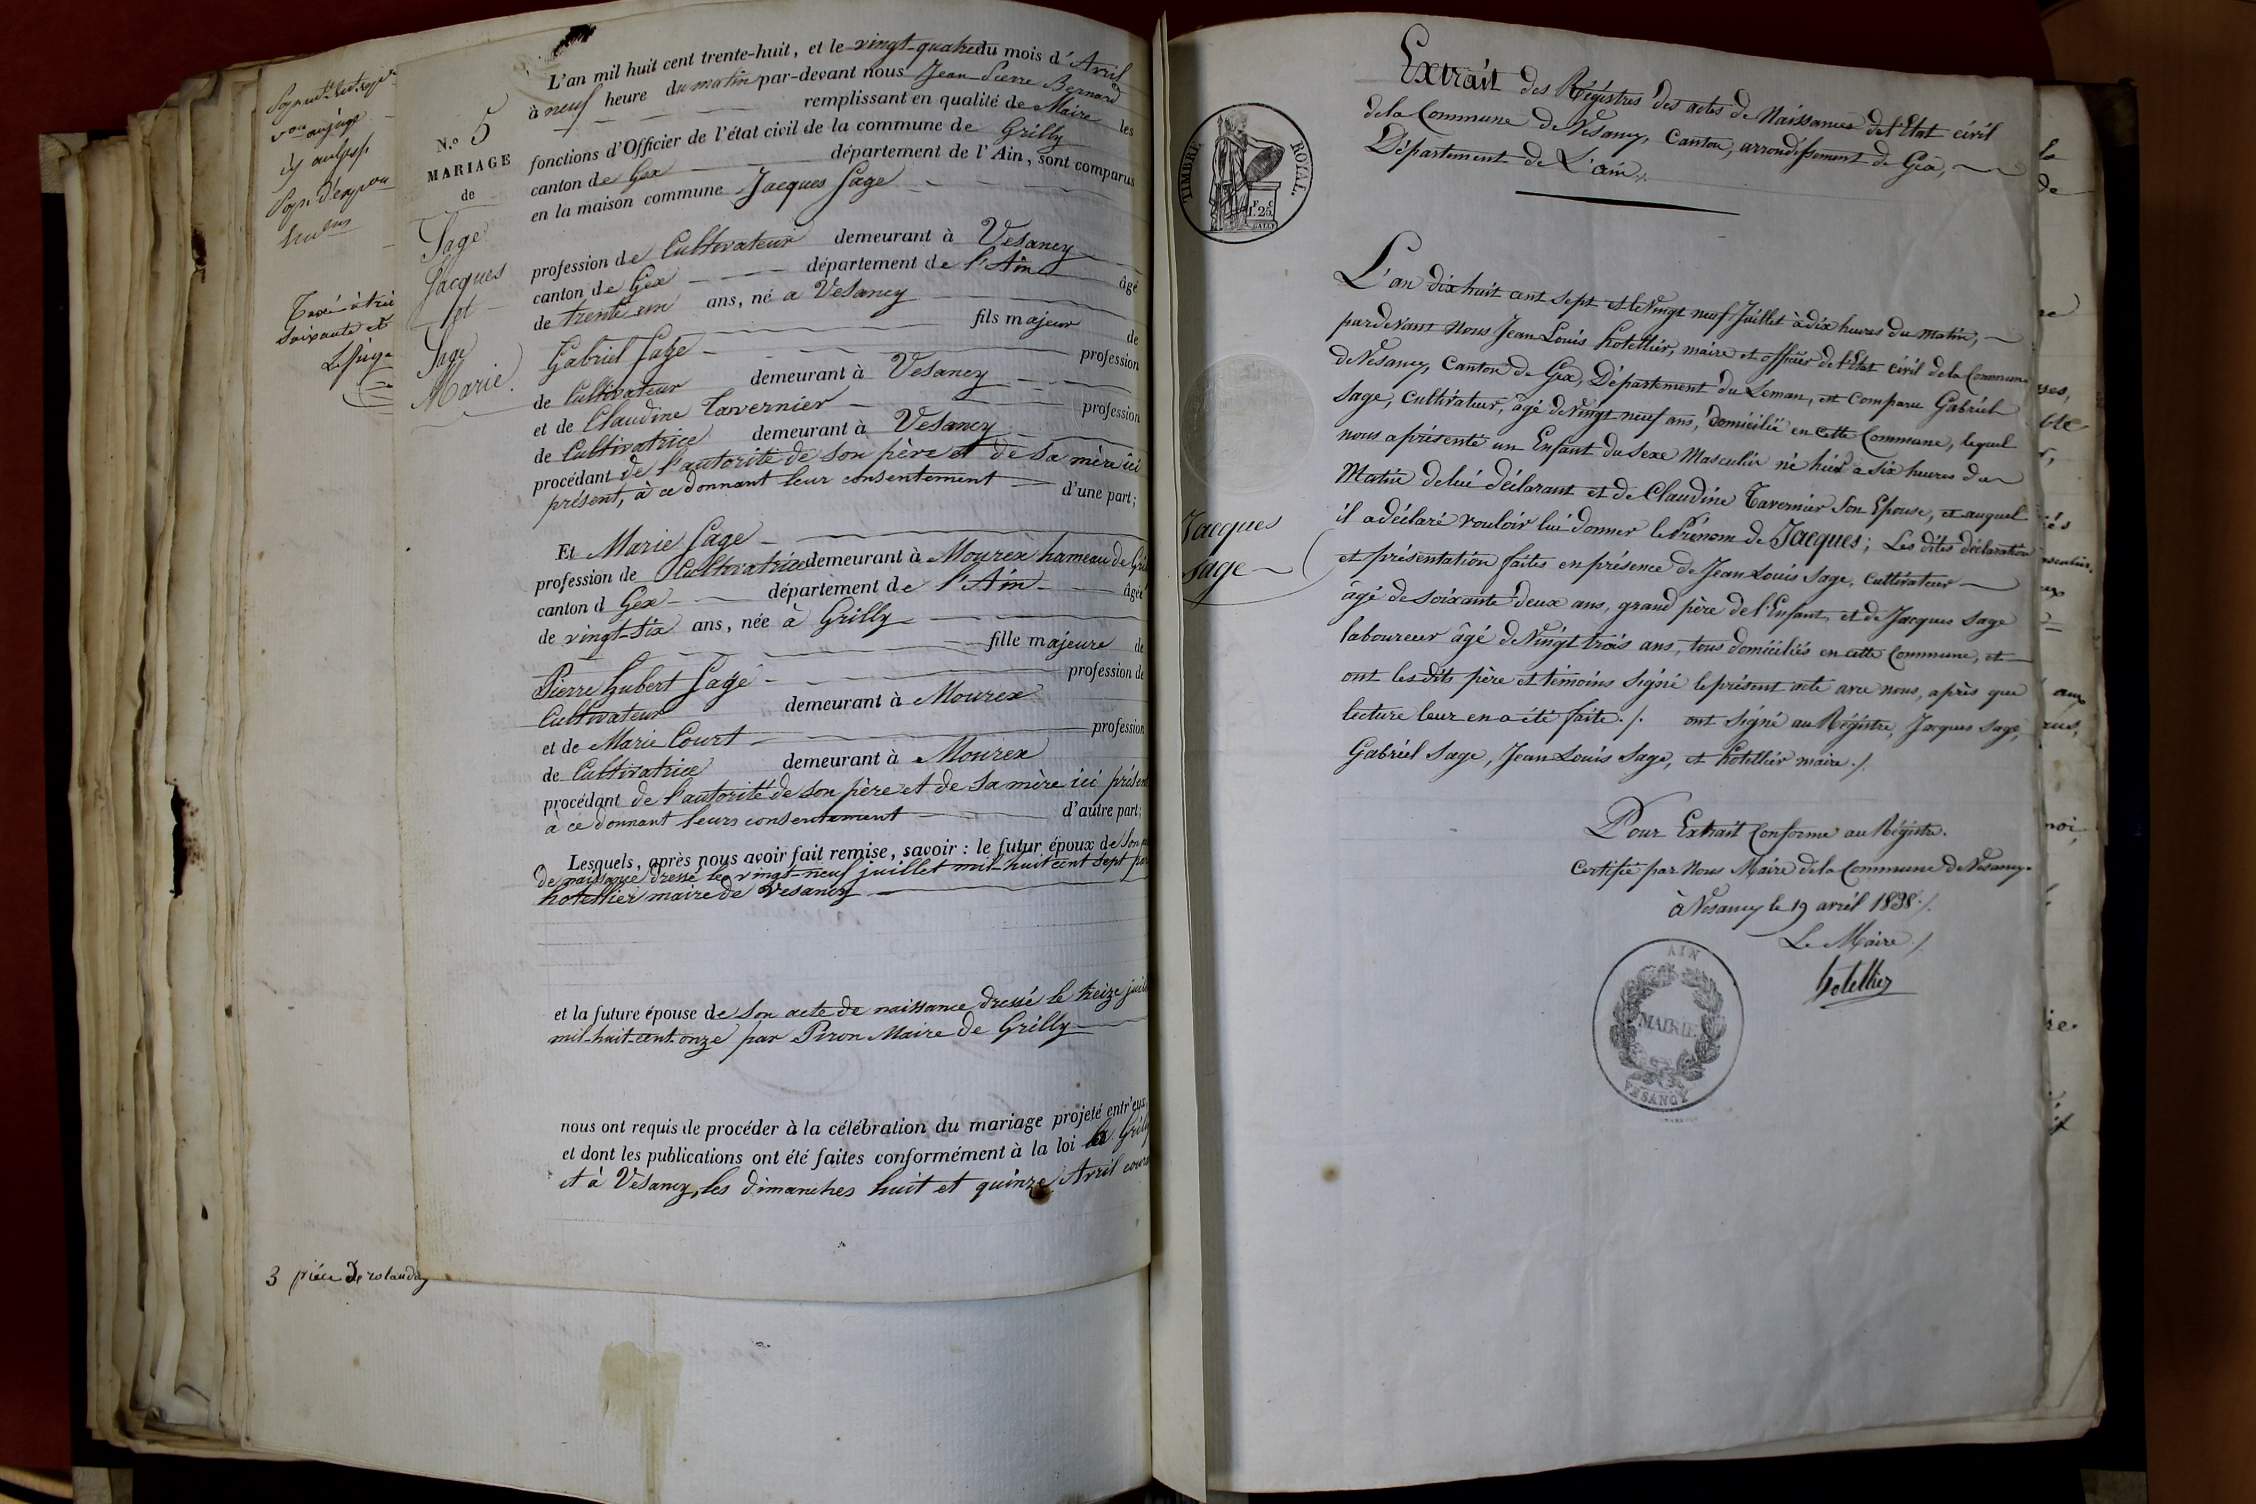 L'an mil huit cent trente-huit, et le vingt-quatre du mois d'Avril
à neuf heure du matin par-devant nous Jean Pierre Bernard
remplissant en qualité de Maire les
fonctions d'Officier de l'état civil de la commune de Grilly
canton de Gex département de l'Ain, sont comparus
en la maison commune Jacques Sage
profession de Cultivateur demeurant à Vesancy
canton de Gex département de l'Ain âgé
de trente un ans, né à Vesancy
fils majeur de
Gabriel Sage profession
de Cultivateur demeurant à Vesancy
et de Claudine Tavernier profession
de Cultivatrice demeurant à Vesancy
procédant de l'autorité de son père et de sa mère ici
présent, à ce donnant leur consentement d'une part;
Et Marie Sage
profession de Cultivatrice demeurant à Mourex hameau de
canton d Gex département de l'Ain âgée
de vingt-six ans, née à Grilly
fille majeure de
Pierre hubert Sage profession de
Cultivateur demeurant à Mourex
et de Marie Court profession
de Cultivatrice demeurant à Mourex
procédant de l'autorité de son père et de sa mère ici présent
à ce donnant leurs consentement d'autre part;
Lesquels, après nous avoir fait remise, savoir: le futur époux de son
de naissance dressé le vingt-neuf juillet mil-huit cent sept par
hotellier maire de Vesancy
et la future épouse de son acte de naissance dressé le treize
mil-huit-cent-onze par Piron Maire de Grilly
nous ont requis de procéder à la célébration du mariage projeté entr'eux,
et dont les publications ont été faites conformément à la loi à Grilly
et à Vesancy, les dimanches huit et quinze Avril
N.° 5
MARIAGE
de
Sage
Jacques
et
Sage
Marie.
soixante et
3
Extrait des Régistres des actes de Naissances de l'Etat civil
de la Commune de Vesancy, Canton, arrondissement de Gex,
Département de L'ain.
TIMBRE ROYAL.
1.F 25.C
L'an dix huit cent sept et le Vingt neuf Juillet à dix heures du matin,
pardevant Nous Jean Louis hotellier, maire et officier de l'Etat civil de la Commune
de Vesancy, Canton de Gex, Département du Leman, est comparu Gabriel
Sage, cultivateur, âgé de Vingt neuf ans, domicilié en cette Commune, lequel
nous a présenté un Enfant du Sexe Masculin né hier à six heures du
Matin de lui déclarant et de Claudine Tavernier Son Epouse, et auquel
il a déclaré vouloir lui donner le Prénom de Jacques; Les dites déclaration
et présentation faites en présence de Jean Louis Sage, cultivateur
âgé de soixante deux ans, grand père de l'Enfant, et de Jacques Sage
laboureur âgé de Vingt trois ans, tous domiciliés en cette Commune, et
ont les dits père et témoins signé le présent acte avec nous, après que
lecture leur en a été faite ./. ont signé au Régistre, Jacques Sage,
Gabriel Sage, Jean Louis Sage, et hotellier maire ./.
Jacques
Sage
Pour Extrait Conforme au Régistre.
Certifié par Nous Maire de la Commune de Vesancy
à Vesancy le 19 avril 1838 ./.
Le Maire ./.
hotellier
AIN
MAIRIE
VESANCY